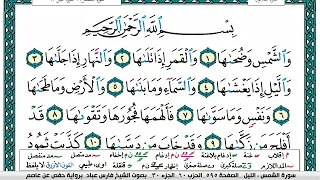 بِسْمِ اللَّهِ الرَّحْمَٰنِ الرَّحِيمِ
وَالشَّمْسِ وَضُحَىٰهَا ١ وَالْقَمَرِ إِذَا تَلَىٰهَا ٢ وَالنَّهَارِ إِذَا جَلَّىٰهَا ٣
وَاللَّيْلِ إِذَا يَغْشَىٰهَا ٤ وَالسَّمَاءِ وَمَا بَنَىٰهَا ٥ وَالْأَرْضِ وَمَا طَحَىٰهَا
٦ وَنَفْسٍ وَمَا سَوَّىٰهَا ٧ فَأَلْهَمَهَا فُجُورَهَا وَتَقْوَىٰهَا ٨ قَدْ
أَفْلَحَ مَن زَكَّىٰهَا ٩ وَقَدْ خَابَ مَن دَسَّىٰهَا ١٠ كَذَّبَتْ ثَمُودُ
سورة الشمس - الليل الصفحة ٥٩٥ الحزب ٦٠ الجزء ٣٠ بصوت الشيخ فارس عباد برواية حفص عن عاصم